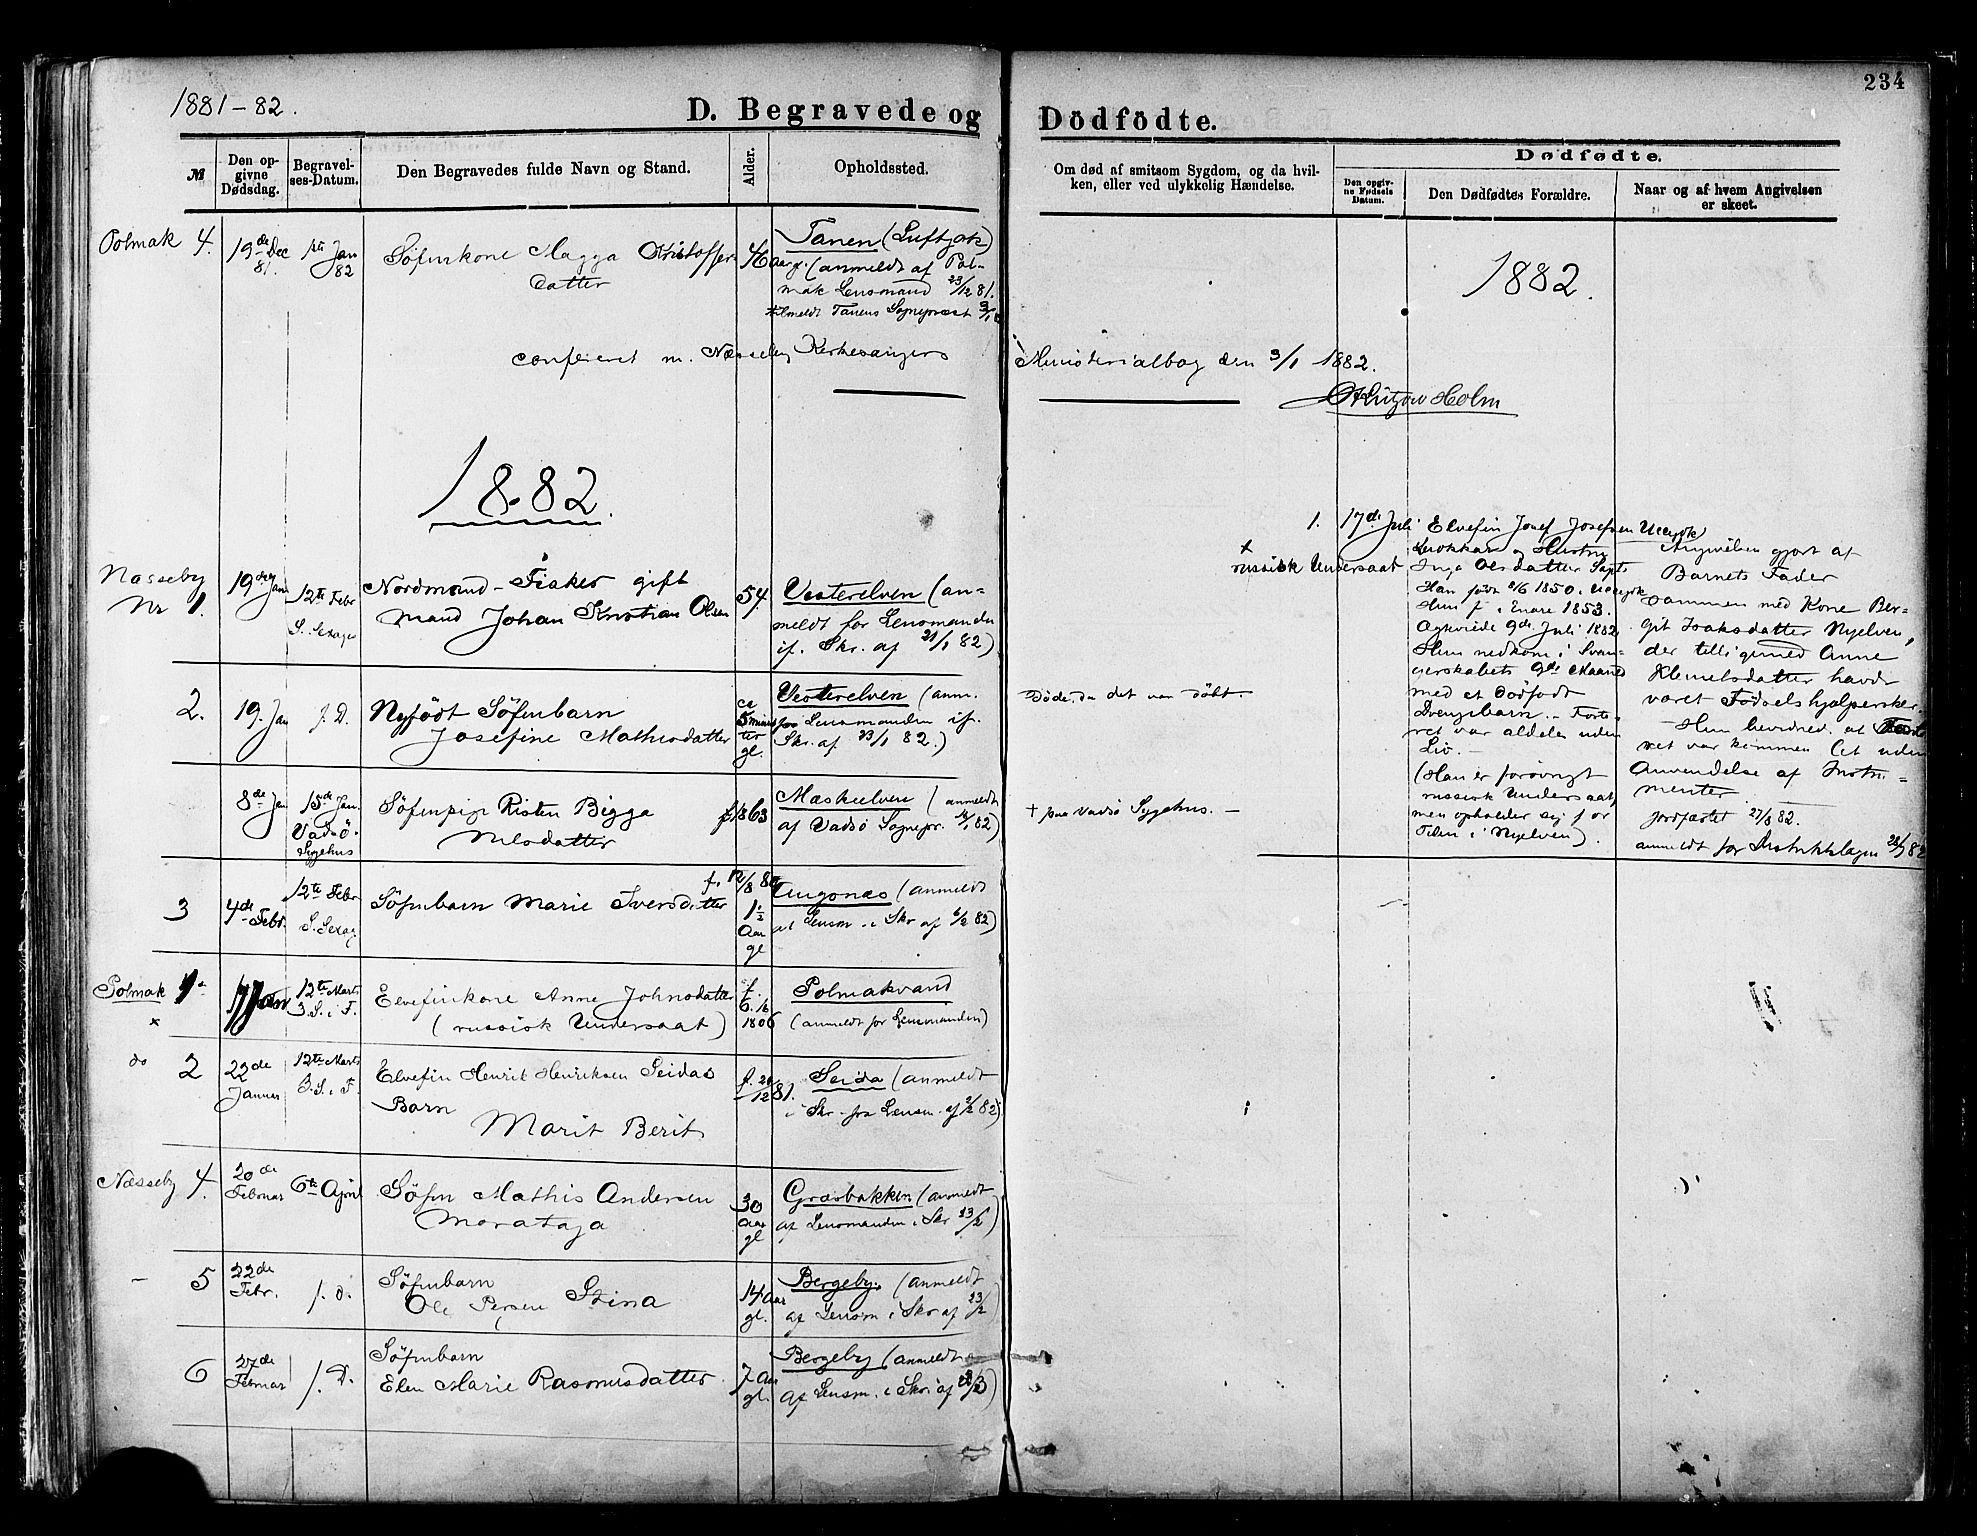 234
1881-82.
D. Begravede og Dödfödte.
№
Den opgivne Dødsdag.
Begravelses-Datum.
Den Begravedes fulde Navn og Stand.
Alder.
Opholdssted.
Om død af smitsom Sygdom, og da hvil-
ken, eller ved ulykkelig Hændelse.
Dødfødte.
Den opgivne Fødsels Datum.
Den Dødfødtes Forældre.
Naar og af hvem Angivelsen
er skeet.
Polmak 4. 19de Dec 81. 1ste Jan 82
Söfinkone Magga Kristoffers
datter
46 Aar gl.
Tanen (Luftjok)
(anmeldt af Pol-
mak Lensmand 23/12 81.
tilmeldt Tanens Sognepræst 3/1
1882.
confereret m. Næsseby Kirkesangers Ministerialbog den 3/1 1882.
Lützow Holm
1882.
Næsseby
Nr 1. 19de Jan 12te Febr
S. Sexages
Nordmand - Fisker gift
Mand Johan Kristian Olsen
54.
Vesterelven (an-
meldt for Lensmanden
if. Skr. af 21/1 82)
2. 19. Jan s. D.
Nyfödt Söfinbarn
Josefine Mathisdatter
ca 5 minutter gl.
Vesterelven (anm.
fra Lensmanden if.
Skr. af 23/1 82.)
Døde, da det var döbt. -
8de Jan 15de Jan. Vadsö Sygehus
Söfinpige Risten Bigga
Nilsdatter
f. 1863
Mæskelven (anmeldt
af Vadsö Sognepr. 82)
+ paa Vadsö Sygehus. -
3 4de Febr. 12te Febr S. Sexag.
Söfinbarn Marie Iversdatter
f. 12/8 80
1½ Aar gl
Angsnæs (anmeldt
af Lensm. i Skr af 6/2 82)
Polmak 1. 17 Jan 12te Marts 3. S. i F.
x
Elvefinkone Anne Johnsdatter
(russisk Undersaat)
f. 6. 16 1806
Polmakvand
(anmeldt for Lensmanden)
do 2 22de Januar 12te Marts 3. S. i F.
Elvefin Henrik Henriksen Seidas
Barn
Marit Berit
f. 20/12 81.
Seida (anmeldt
i Skr. fra Lensm. af 2/2 82)
Næsseby 4. 20de Februar 6te April
Söfin Mathis Andersen
Morataja
30 Aar gl
Græsbakken (anmeldt
af Lensmanden i Skr 23/2)
- 5 22de Febr. s. d.
Söfinbarn
Ole Persen Stina
14 Aar gl.
Bergeby. (anmeldt
af Lensm i Skr af 23/2)
6 27de Februar s. D.
Söfinbarn
Elen Marie Rasmusdatter
7 Aar gl.
Bergeby (anmeldt
af Lensm. i Skr. af 28/2)
1. 17de Juli
x
russisk Undersaat
Elvefin Josef Josefsen Utsjok
og Hustru
Inga Olsdatter
Han født 8/6 1850 i Utsjok
Hun f. i Enare 1853.
Ægteviede 9de Juli 1882.
Hun nedkom i Svan-
gerskabets 9de Maaned
med et Dödfödt
Drengebarn. - Foste-
ret var aldeles uden
Liv. -
(Han er forövrigt
russisk Undersaat,
men opholder sig for
Tiden i Nyelven).
Angivelsen gjort af
Barnets Fader
sammen med Kone Ber-
git Isaksdatter Nyelven,
der tilligemed Anne
Klemetsdatter havde
været Fødselshjælpersker.
- Hun bevidned, at Foste
ret var kommen let uden
Anvendelse af Instru-
menter.
Jordfæstet 27/8 82.
anmeldt for Distriktslægen 28/7 82